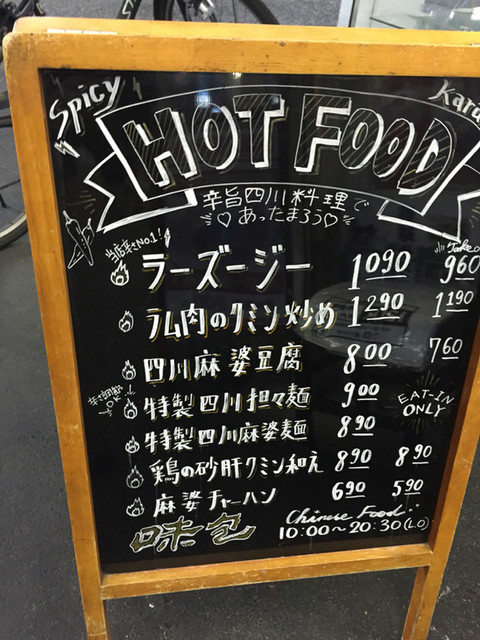 Spicy
Kara
HOT FOOD
辛旨四川料理で
♡あったまろう♡
当店辛さNo.1!
Take
ラーズージー 1090 960
ラム肉のクミン炒め 1290 1190
四川麻婆豆腐 800 760
特製四川担々麺 900
EAT-IN ONLY
特製四川麻婆麺 890
鶏の砂肝クミン和え 890 890
麻婆チャーハン 690 590
味包
Chinese Food
10:00~20:30(LO)